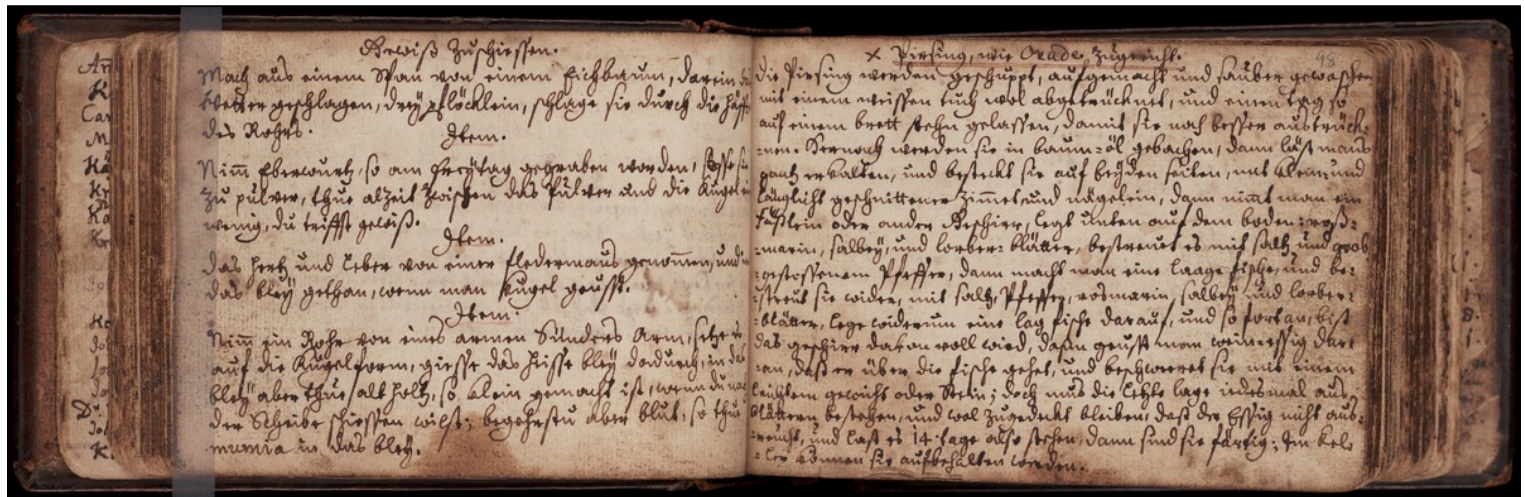 Gewiß zuschiessen.
Mach aus einem Span von einem Eichbaum, darein das
Wetter geschlagen, drey pflöcklein, schlage sie durch die
des Rohrs.
Item.
Nim̅ Eberwurtz, so am freytag gegraben worden, stosse sie
zu pulver, thue alzeit zwischen das Pulver und die Kugel ein
wenig, du triffst gewiß.
Item.
Das hertz und leber von einer fledermaus genom̅en, und in
das bley gethan, wenn man Kugel geust.
Item.
Nim̅ ein Rohr von eines armen Sünders Arm, setze es
auf die Kugelform, giesse das heisse bley dadurch, in das
bley aber thue alt holtz, so klein gemacht ist, wenn du nach
der Scheibe schiessen wilst; begehrstu aber blut, so thue
mumia in das bley.
An
K
Car
M
Kr
Kr
K.
98
x Pirsing, wie Orade, zugericht.
die Pirsing werden geschuppt, aufgemacht und sauber gewaschen
mit einem weissen tuch wol abgetrücknet, und einen tag so
auf einem brett stehn gelassen, damit sie noch besser austrück-
-nen. Hernach werden sie in baum-öl gebachen, dann läst mans
gantz erkalten, und besteckt sie auf beyden seiten, mit klein und
länglicht geschnittener Zimmet und nägelein, dann nimt man ein
fäßlein oder ander Geschirr, legt unten auf dem boden roß-
-marin, salbey, und lorber-blätter, bestreut es mit saltz und grob
-gestossenem Pfeffer, dann macht man eine laage fische, und be-
-streut sie wider, mit saltz, Pfeffer, rosmarin, salbey und lorber-
-blätter, lege widerum eine lag fische darauf, und so fortan, bist
das geschirr davon voll wird, dañ geust man weinessig dar-
-an, daß er über die fische gehet, und beschweret sie mit einem
leichtem gewicht oder Stein; doch mus die letzte lage iedesmal aus
blättern bestehen, und wol zugedeckt bleiben, daß der Essig nicht aus-
-reucht, und last es 14 tage also stehen, dann sind sie färtig; Im Kel-
-ler können sie aufbehalten werden.